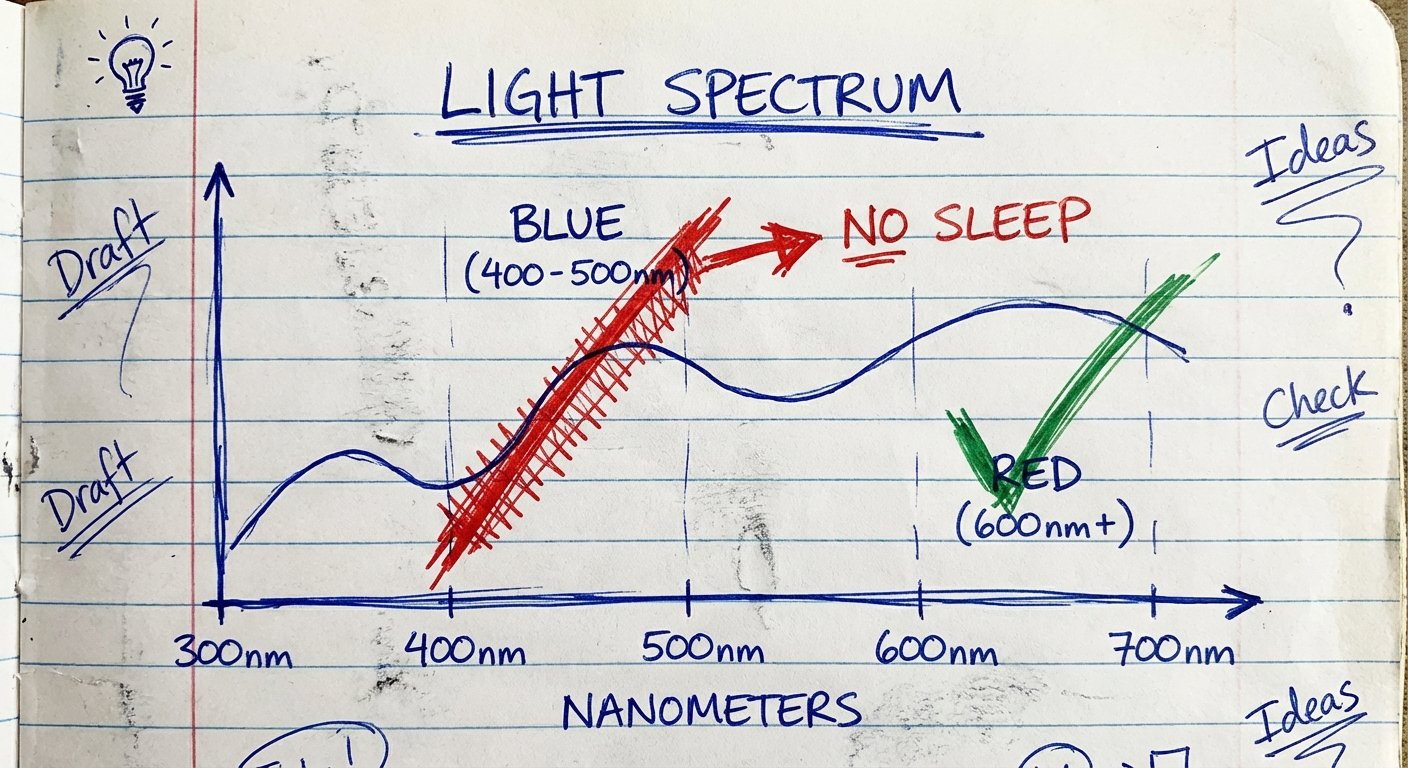 LIGHT SPECTRUM
Ideas
Draft
BLUE
(400-500nm)
NO SLEEP
Check
Draft
RED
(600nm+)
300nm 400nm 500nm 600nm 700nm
NANOMETERS
Ideas